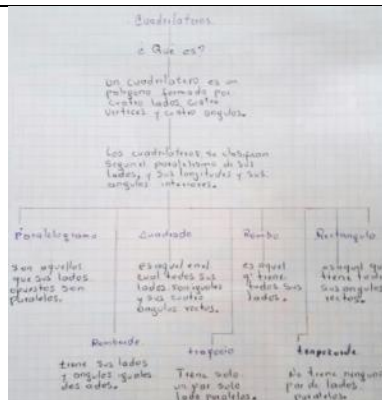 Cuadrilateros.
¿ Que es?
Un cuadrilatero es un
poligono formado por
cuatro lados, cuatro
vertices y cuatro angulos.
Los cuadrilateros se clasifican
segun el paralelismo de sus
lados, y sus longitudes y sus
angulos interiores.
Paralelogramo
son aquellos
que sus lados
opuestos son
paralelos.
Cuadrado
es aquel en el
cual todos sus
lados son iguales
y sus cuatro
angulos rectos.
Rombo
es aquel
q' tiene
todos sus
lados.
Rectangulo
es aquel que
tiene todos
sus angulos
rectos.
Romboide
tiene sus lados
y angulos iguales
dos ados.
trapecio
Tiene solo
un par solo
lado paralelos.
trapezoide
No tiene ningun
par de lados
paralelos.